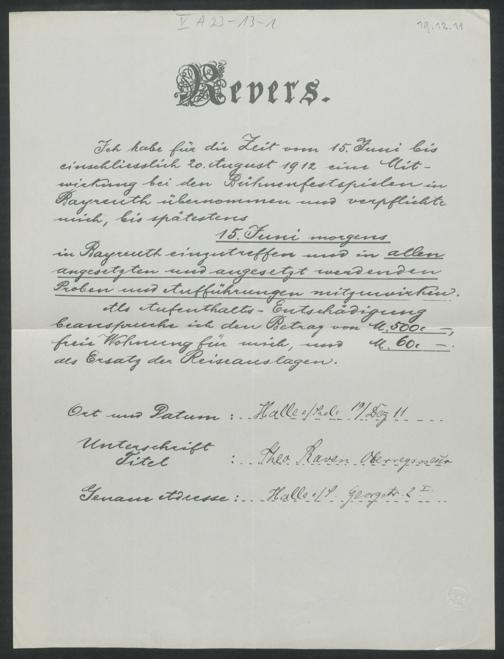 V A 23-13-1
19.12.11
Revers.
Ich habe für die Zeit vom 15. Juni bis
einschliesslich 20. August 1912 eine Mit-
wirkung bei den Bühnenfestspielen in
Bayreuth übernommen und verpflichte
mich, bis spätestens
15. Juni morgens
in Bayreuth einzutreffen und in allen
angesetzten und angesetzt werdenden
Proben und Aufführungen mitzuwirken.
Als Aufenthalts-Entschädigung
beanspruche ich den Betrag von M. 500.-,
freie Wohnung für mich, und M. 60.-.
als Ersatz der Reiseauslagen.
Ort und Datum : Halle a/Saale 19/Dez 11
Unterschrift
Titel : Theo Raven Oberregisseur
Genaue Adresse : Halle a/S. Georgstr. 2 I